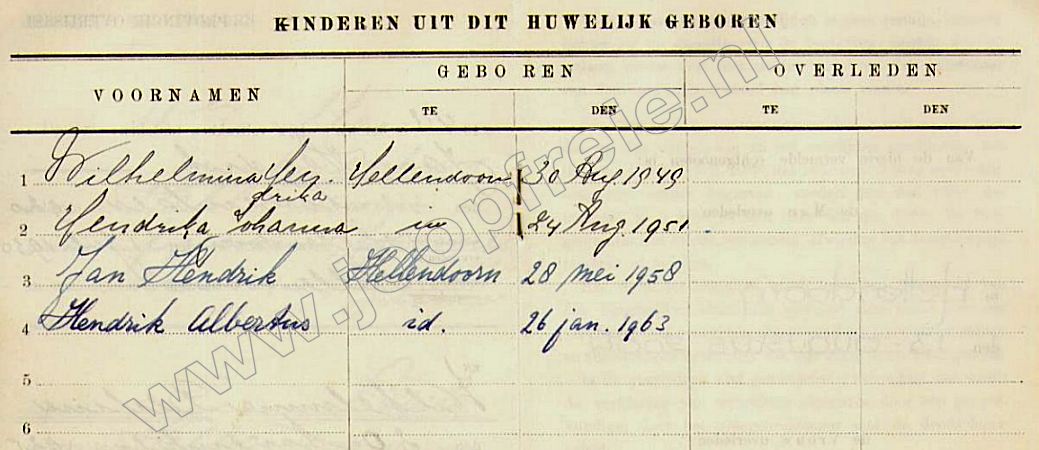 KINDEREN UIT DIT HUWELIJK GEBOREN
VOORNAMEN GEBOREN OVERLEDEN
TE DEN TE DEN
1 Wilhelmina Hen- Hellendoorn 30 Aug. 1949
drika
2 Hendrika Johanna 24 Aug. 1951
3 Jan Hendrik Hellendoorn 28 mei 1958
4 Hendrik Albertus id. 26 jan. 1963
5
6
www.joopfreie.nl